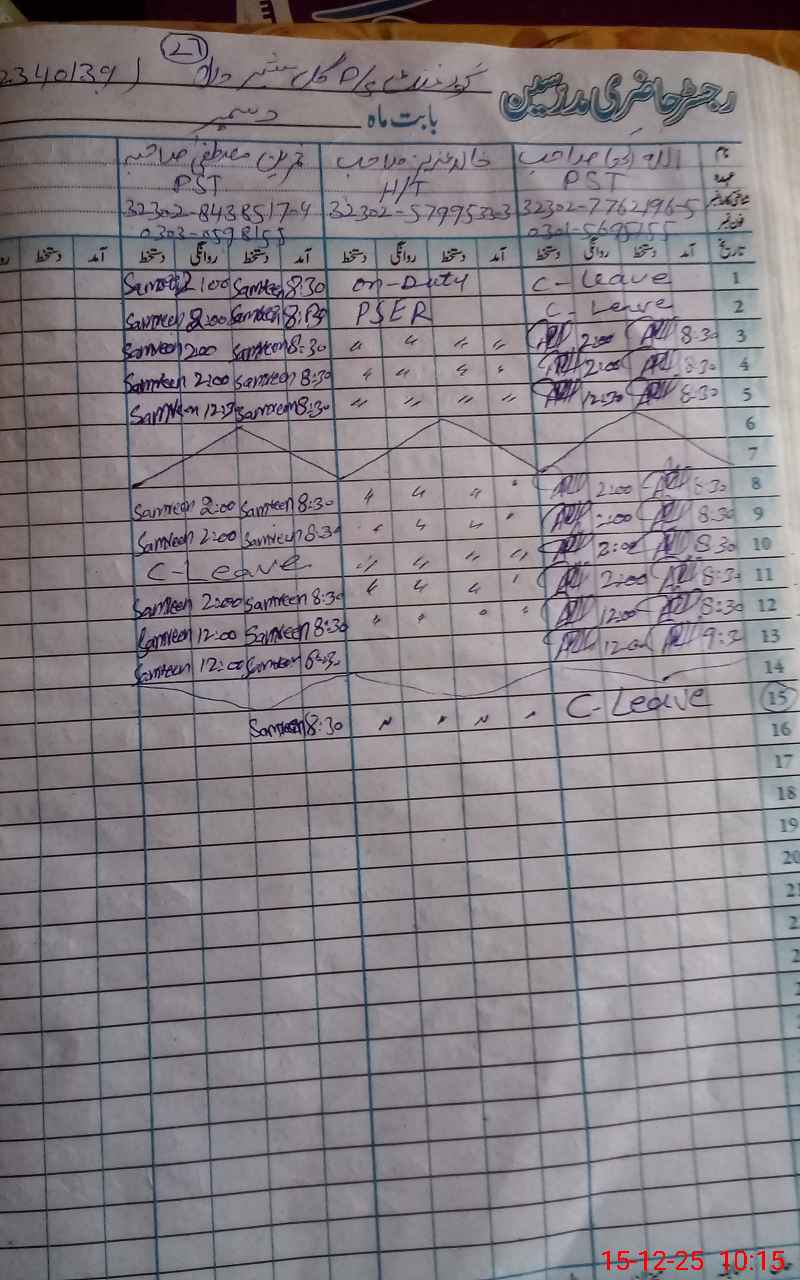 رجسٹر حاضری مدرسین
گورنمنٹ P/S گل شیر
27
بابت ماہ دسمبر
نام خالد عزیز صاحب
عہدہ PST H/T PST
32302-7762196-5 32302-8438517-4
0301-5695755 0303-0598155
تاریخ آمد دستخط روانگی دستخط آمد دستخط روانگی دستخط آمد دستخط روانگی دستخط آمد دستخط
1 C-Leave on-Duty 8:30 Samreen 2:00 Samreen
2 C-Leave PSER 8:30 Samreen 2:00 Samreen
3 8:30 2:00 " " " " 8:30 Samreen 2:00 Samreen
4 8:30 2:00 " " " " 8:30 Samreen 2:00 Samreen
5 8:30 12:30 " " " " 8:30 Samreen 12:30 Samreen
6
7
8 8:30 2:00 " " " " 8:30 Samreen 2:00 Samreen
9 8:30 :00 " " " " 8:30 Samreen 2:00 Samreen
10 8:30 2:00 " " " " C-Leave
11 8:30 2:00 " " " " 8:30 Samreen 2:00 Samreen
12 8:30 12:00 " " " " 8:30 Samreen 12:00 Samreen
13 9:3 12:00 8:30 Samreen 12:00 Samreen
14
15 C-Leave " " " " 8:30 Samreen
16
17
18
19
20
21
15-12-25 10:15